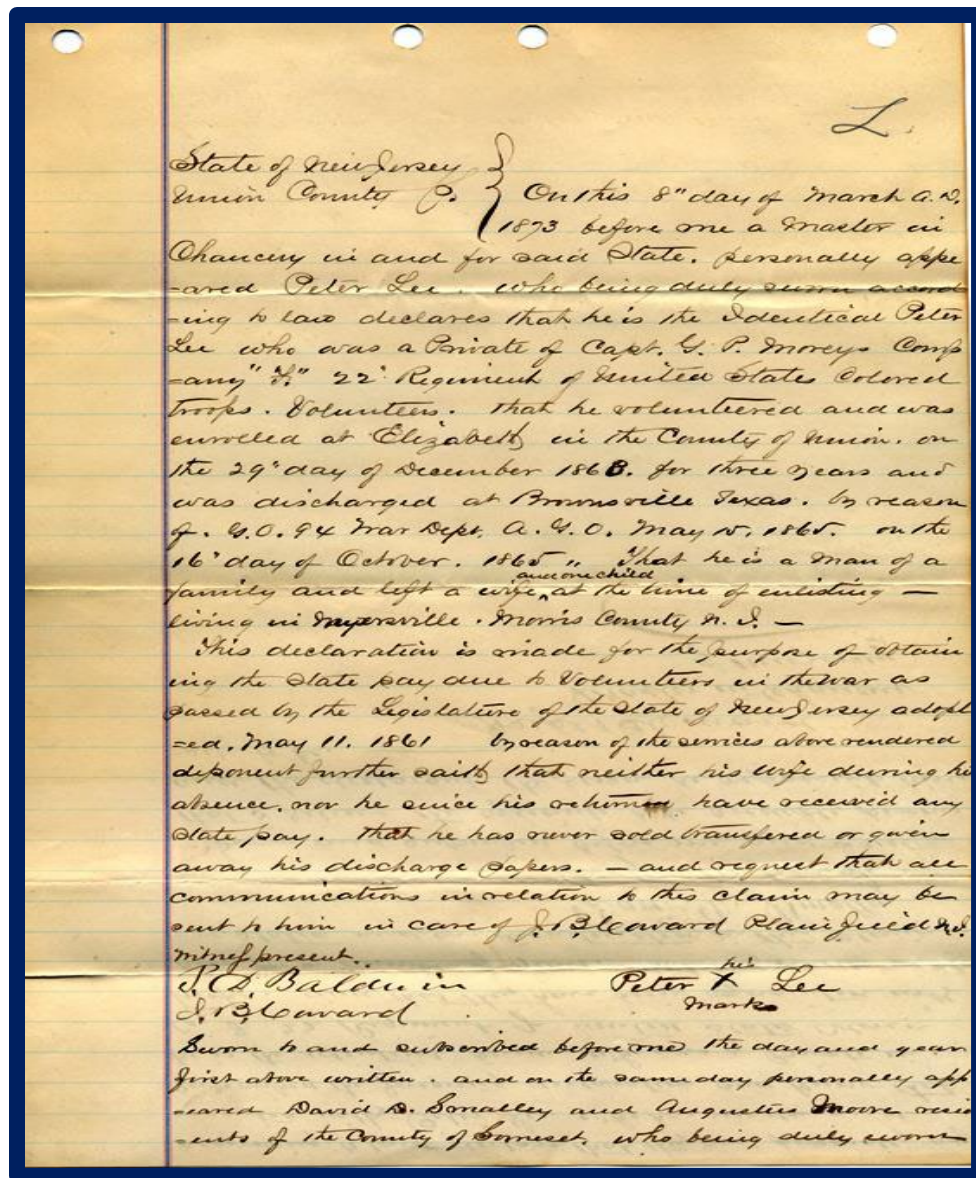 L.
State of New Jersey
Union County
On this 8" day of March A.D.
1873 before me a Master in
Chancery in and for said State. personally appe
=ared Peter Lee. who being duly sworn accord
=ing to law declares that he is the Identical Peter
Lee who was a Private of Capt. G. P. Moreys Comp
=any "F" 22' Regiment of United States Colored
troops. Volunteers. that he volunteered and was
enrolled at Elizabeth in the County of Union. on
the 29" day of December 1863. for three years and
was discharged at Brownsville Texas. by reason
of. G.O. 94 War Dept. A.G.O. May 15. 1865. on the
16' day of October. 1865 " That he is a man of a
family and left a wife and one child at the time of enlisting —
living in Myersville. Morris County N.J. —
This declaration is made for the purpose of obtain
ing the State pay due to Volunteers in the war as
passed by the Legislature of the State of New Jersey adopt
=ed. May 11. 1861 by reason of the services above rendered
deponent further saith that neither his wife during his
absence. nor he since his return have received any
State pay. that he has never sold transfered or given
away his discharge papers. — and request that all
communications in relation to this claim may be
sent to him in care of J. B. Coward Plainfield N.J.
Witness present.
Baldwin
Peter his X mark Lee
J. B. Coward
Sworn to and subscribed before me the day and year
first above written. and on the same day personally app
=eared David D. Smalley and Augustus Moore resid
=ents of the County of Somerset. who being duly sworn